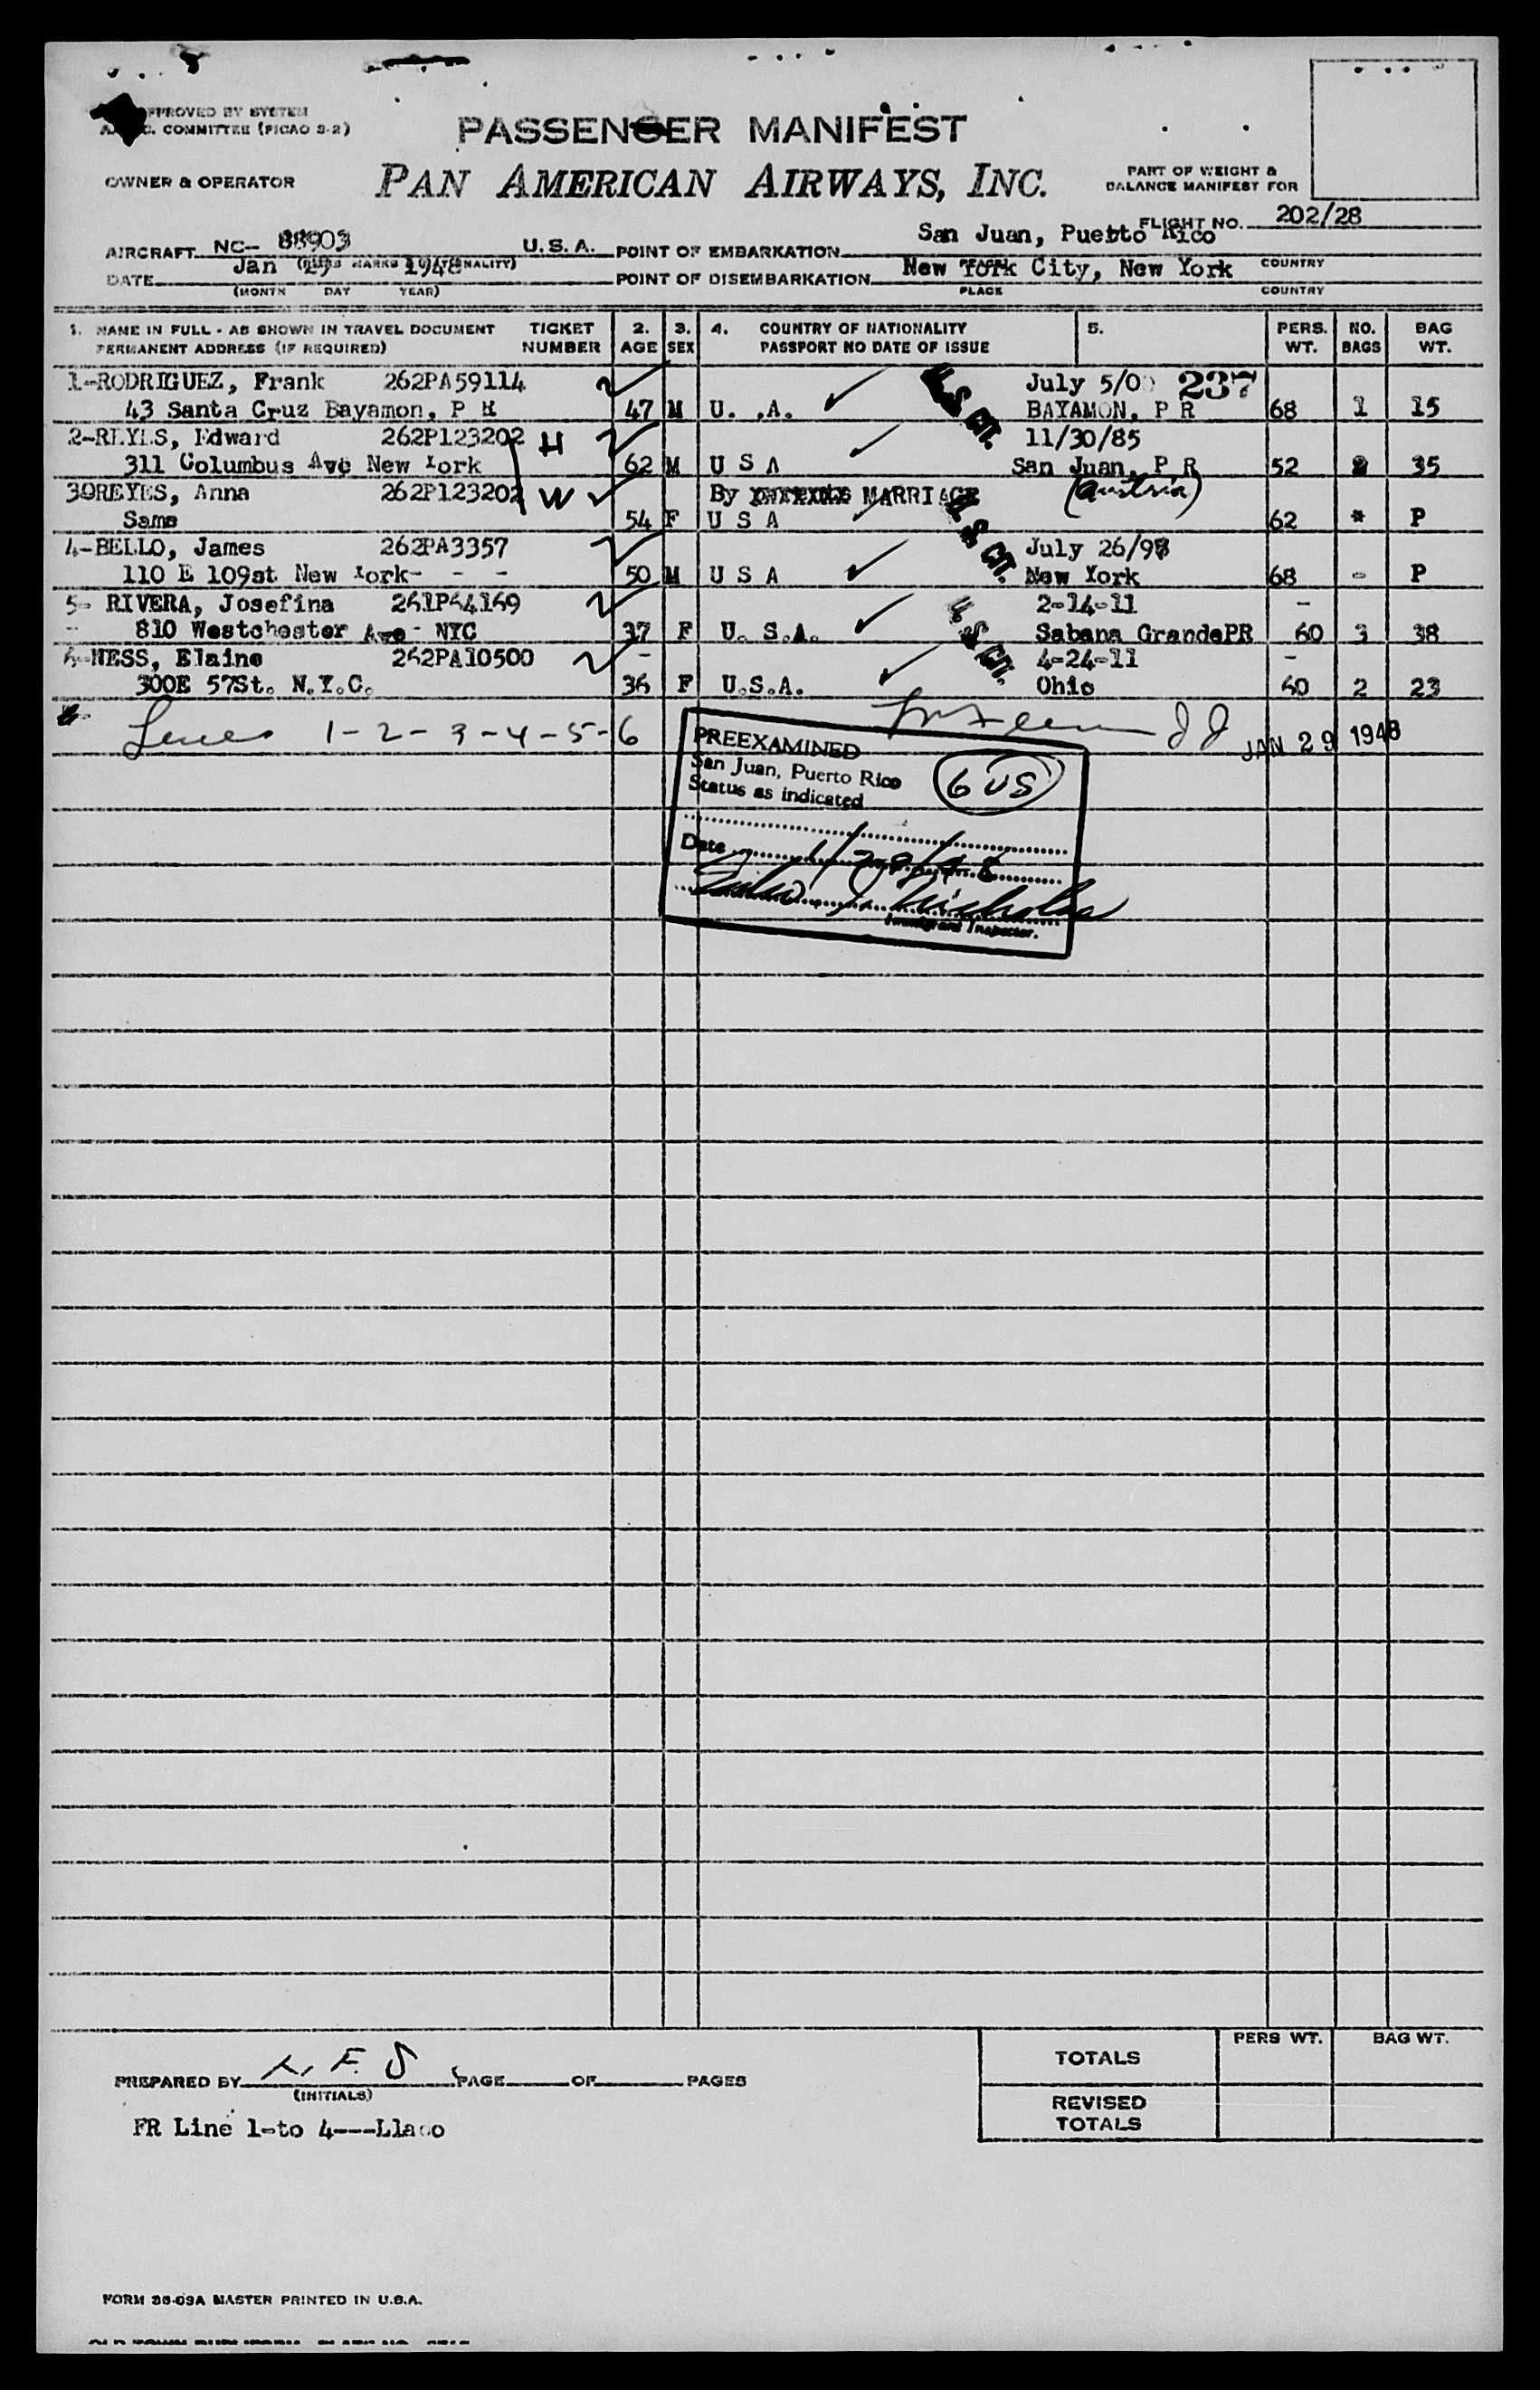 APPROVED BY SYSTEM
COMMITTEE (PICAO S-2)
PASSENGER MANIFEST
OWNER & OPERATOR
PAN AMERICAN AIRWAYS, INC.
PART OF WEIGHT &
BALANCE MANIFEST FOR
FLIGHT NO. 202/28
AIRCRAFT NC-- 88903 U.S.A. POINT OF EMBARKATION San Juan, Puerto Rico
DATE Jan 29 1948 POINT OF DISEMBARKATION New York City, New York COUNTRY
(MONTH DAY YEAR) PLACE COUNTRY
1. NAME IN FULL - AS SHOWN IN TRAVEL DOCUMENT TICKET 2. 3. 4. COUNTRY OF NATIONALITY 5. PERS. NO. BAG
PERMANENT ADDRESS (IF REQUIRED) NUMBER AGE SEX PASSPORT NO DATE OF ISSUE WT. BAGS WT.
1-RODRIGUEZ, Frank 262PA59114 July 5/00 237
43 Santa Cruz Bayamon, P R 47 M U. .A. U.S. CIT. BAYAMON, P R 68 1 15
2-REYES, Edward 262P123202 H 11/30/85
311 Columbus Ave New York 62 M U S A San Juan, P R 52 2 35
30REYES, Anna 262P123202 W By MARRIAGE (Austria)
Same 54 F U S A U.S. CIT. 62 * P
4-BELLO, James 262PA3357 July 26/98
110 E 109st New York- - - 50 M U S A New York 68 - P
5- RIVERA, Josefina 261P54169 2-14-11 -
810 Westchester Ave NYC 37 F U. S.A. U.S. CIT. Sabana GrandePR 60 3 38
6-NESS, Elaine 262PA10500 - 4-24-11 -
300E 57St. N.Y.C. 36 F U.S.A. Ohio 60 2 23
Lines 1-2-3-4-5-6 JAN 29 1948
PREEXAMINED
San Juan, Puerto Rico
Status as indicated
6 US
Date 1/28/48
Immigrant Inspector.
PREPARED BY PAGE OF PAGES
(INITIALS)
PERS WT. BAG WT.
TOTALS
REVISED
TOTALS
FR Line 1-to 4---Llaco
FORM 36-03A MASTER PRINTED IN U.S.A.